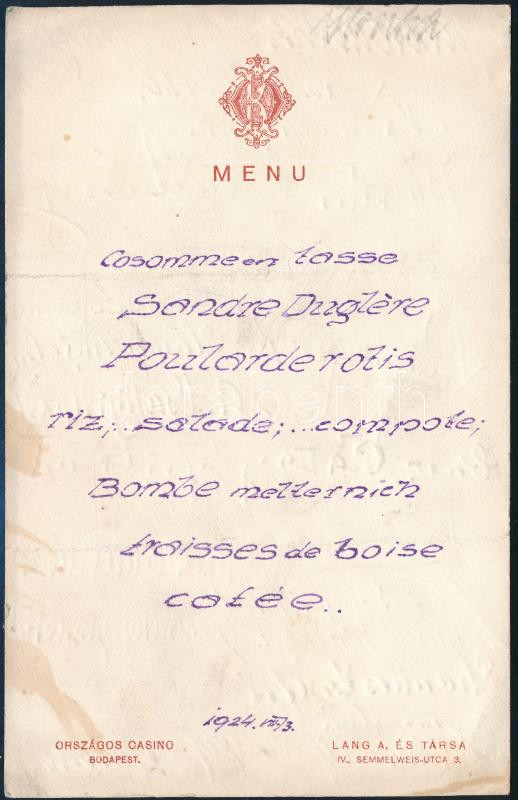 MENU
Cosomme en tasse
Sandre Duglère
Poularde rotis
riz;.. salade;... compote;
Bombe metternich
fraisses de boise
cafée..
1924. VII/3.
ORSZÁGOS CASINO
BUDAPEST.
LANG A. ÉS TÁRSA
IV., SEMMELWEIS-UTCA 3.